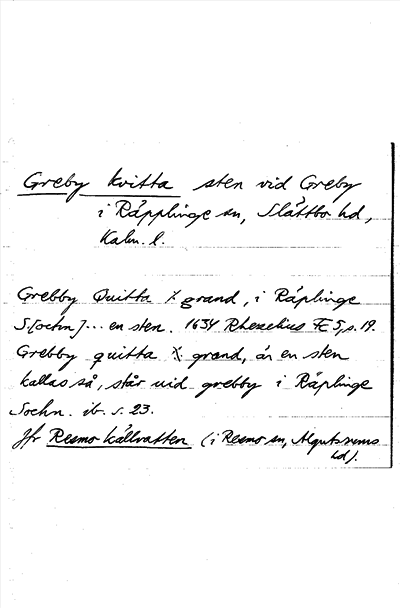 Greby kvitta sten vid Greby
i Räpplinge sn, Slättbo hd,
Kalm. l.
Grebby Quitta X grand, i Räplinge
S[ochn]... en sten. 1634 Rhezelius FE 5, s. 19.
Grebby quitta X grand, är en sten
kallas så, står uid grebby i Räplinge
Sochn. ib. s. 23.
Jfr Resmo källvatten (i Resmo sn, Algutsrums
hd).